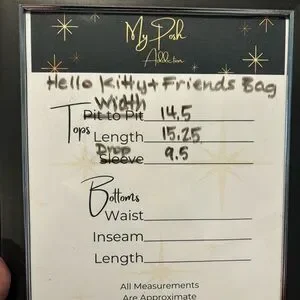 My Posh
Addiction
Hello Kitty + Friends Bag
Width
Pit to Pit 14.5
Tops
Length 15.25
Drop
Sleeve 9.5
Bottoms
Waist
Inseam
Length
All Measurements
Are Approximate